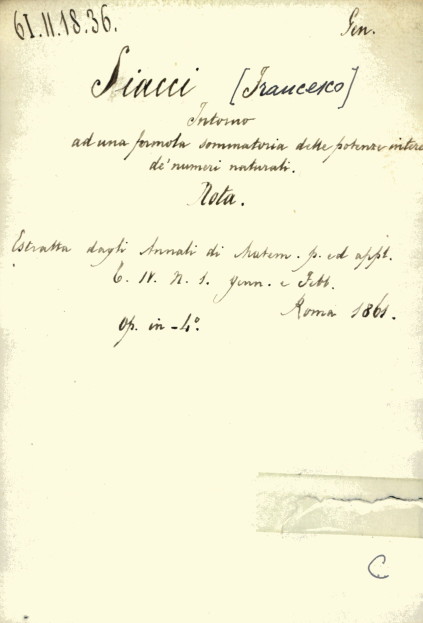 61.11.18.36.
Gen.
Siacci [Francesco]
Intorno
ad una formola sommatoria delle potenze intere
de' numeri naturali.
Nota.
Estratta dagli Annali di Matem. p. ed appl.
T. IV. N. 1. genn. e Febb.
Roma 1861.
Op. in-4º.
C